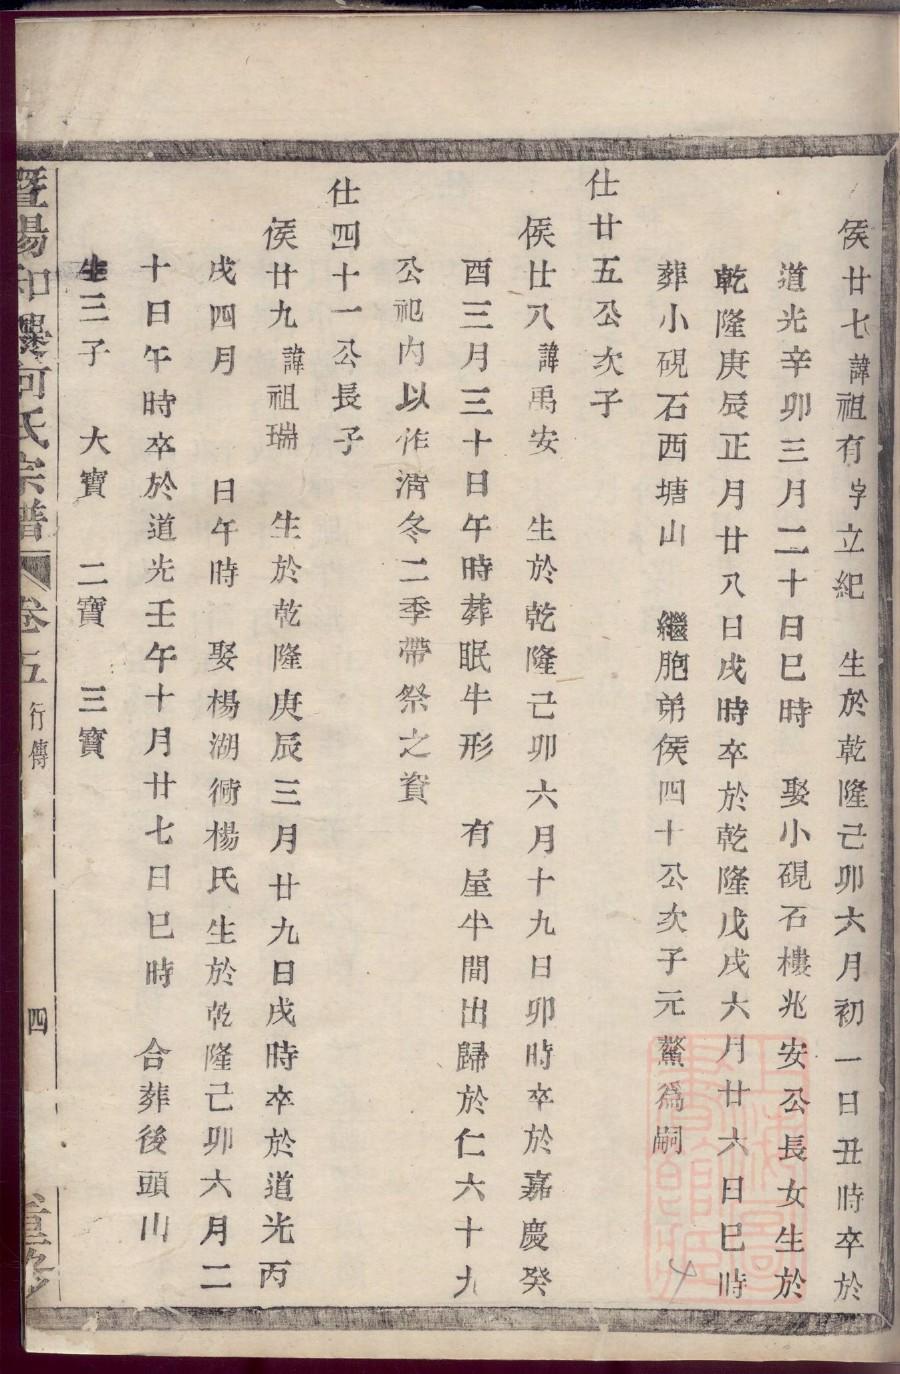 侯廿七諱祖有字立紀　生於乾隆己卯六月初一日丑時卒於
道光辛卯三月二十日巳時　娶小硯石樓兆安公長女生於
乾隆庚辰正月廿八日戌時卒於乾隆戊戌六月廿六日巳時
葬小硯石西塘山　繼胞弟侯四十公次子元鰲為嗣
仕廿五公次子
侯廿八諱禹安　生於乾隆己卯六月十九日卯時卒於嘉慶癸
酉三月三十日午時葬眠牛形　有屋半間出歸於仁六十九
公祀內以作淸冬二季帶祭之資
仕四十一公長子
侯廿九諱祖瑞　生於乾隆庚辰三月廿九日戌時卒於道光丙
戌四月　日午時　娶楊湖衕楊氏生於乾隆己卯六月二
十日午時卒於道光壬午十月廿七日巳時　合葬後頭山
生三子　大寶　二寶　三寶
暨陽和　何氏宗譜　卷五　行傳　四